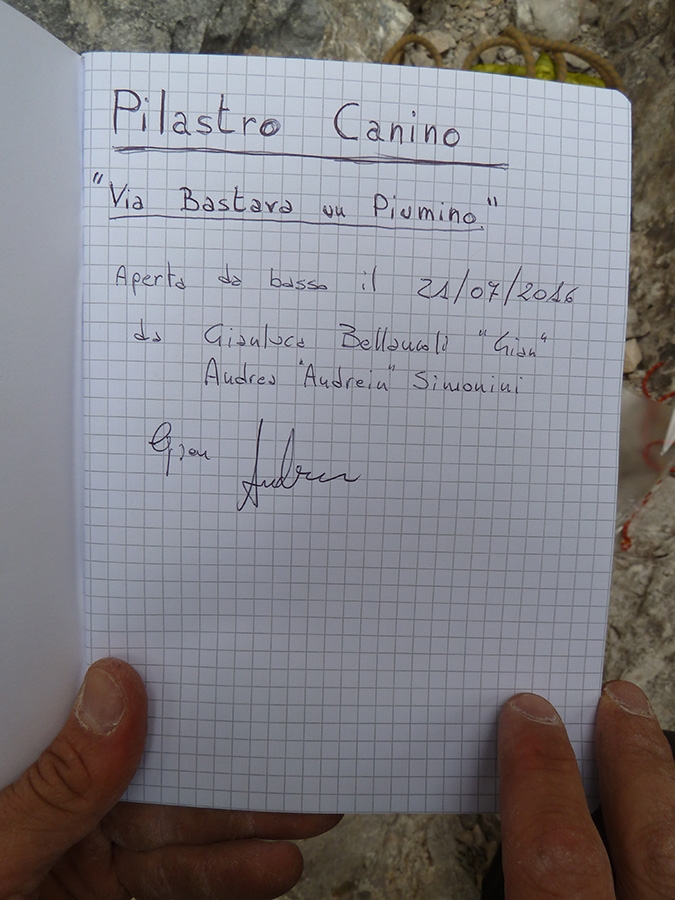 Pilastro Canino
"Via Bastava un Piumino"
Aperta da basso il 21/07/2016
da Gianluca Bellamoli "Gian"
Andrea "Andrein" Simonini
Gian Andrea